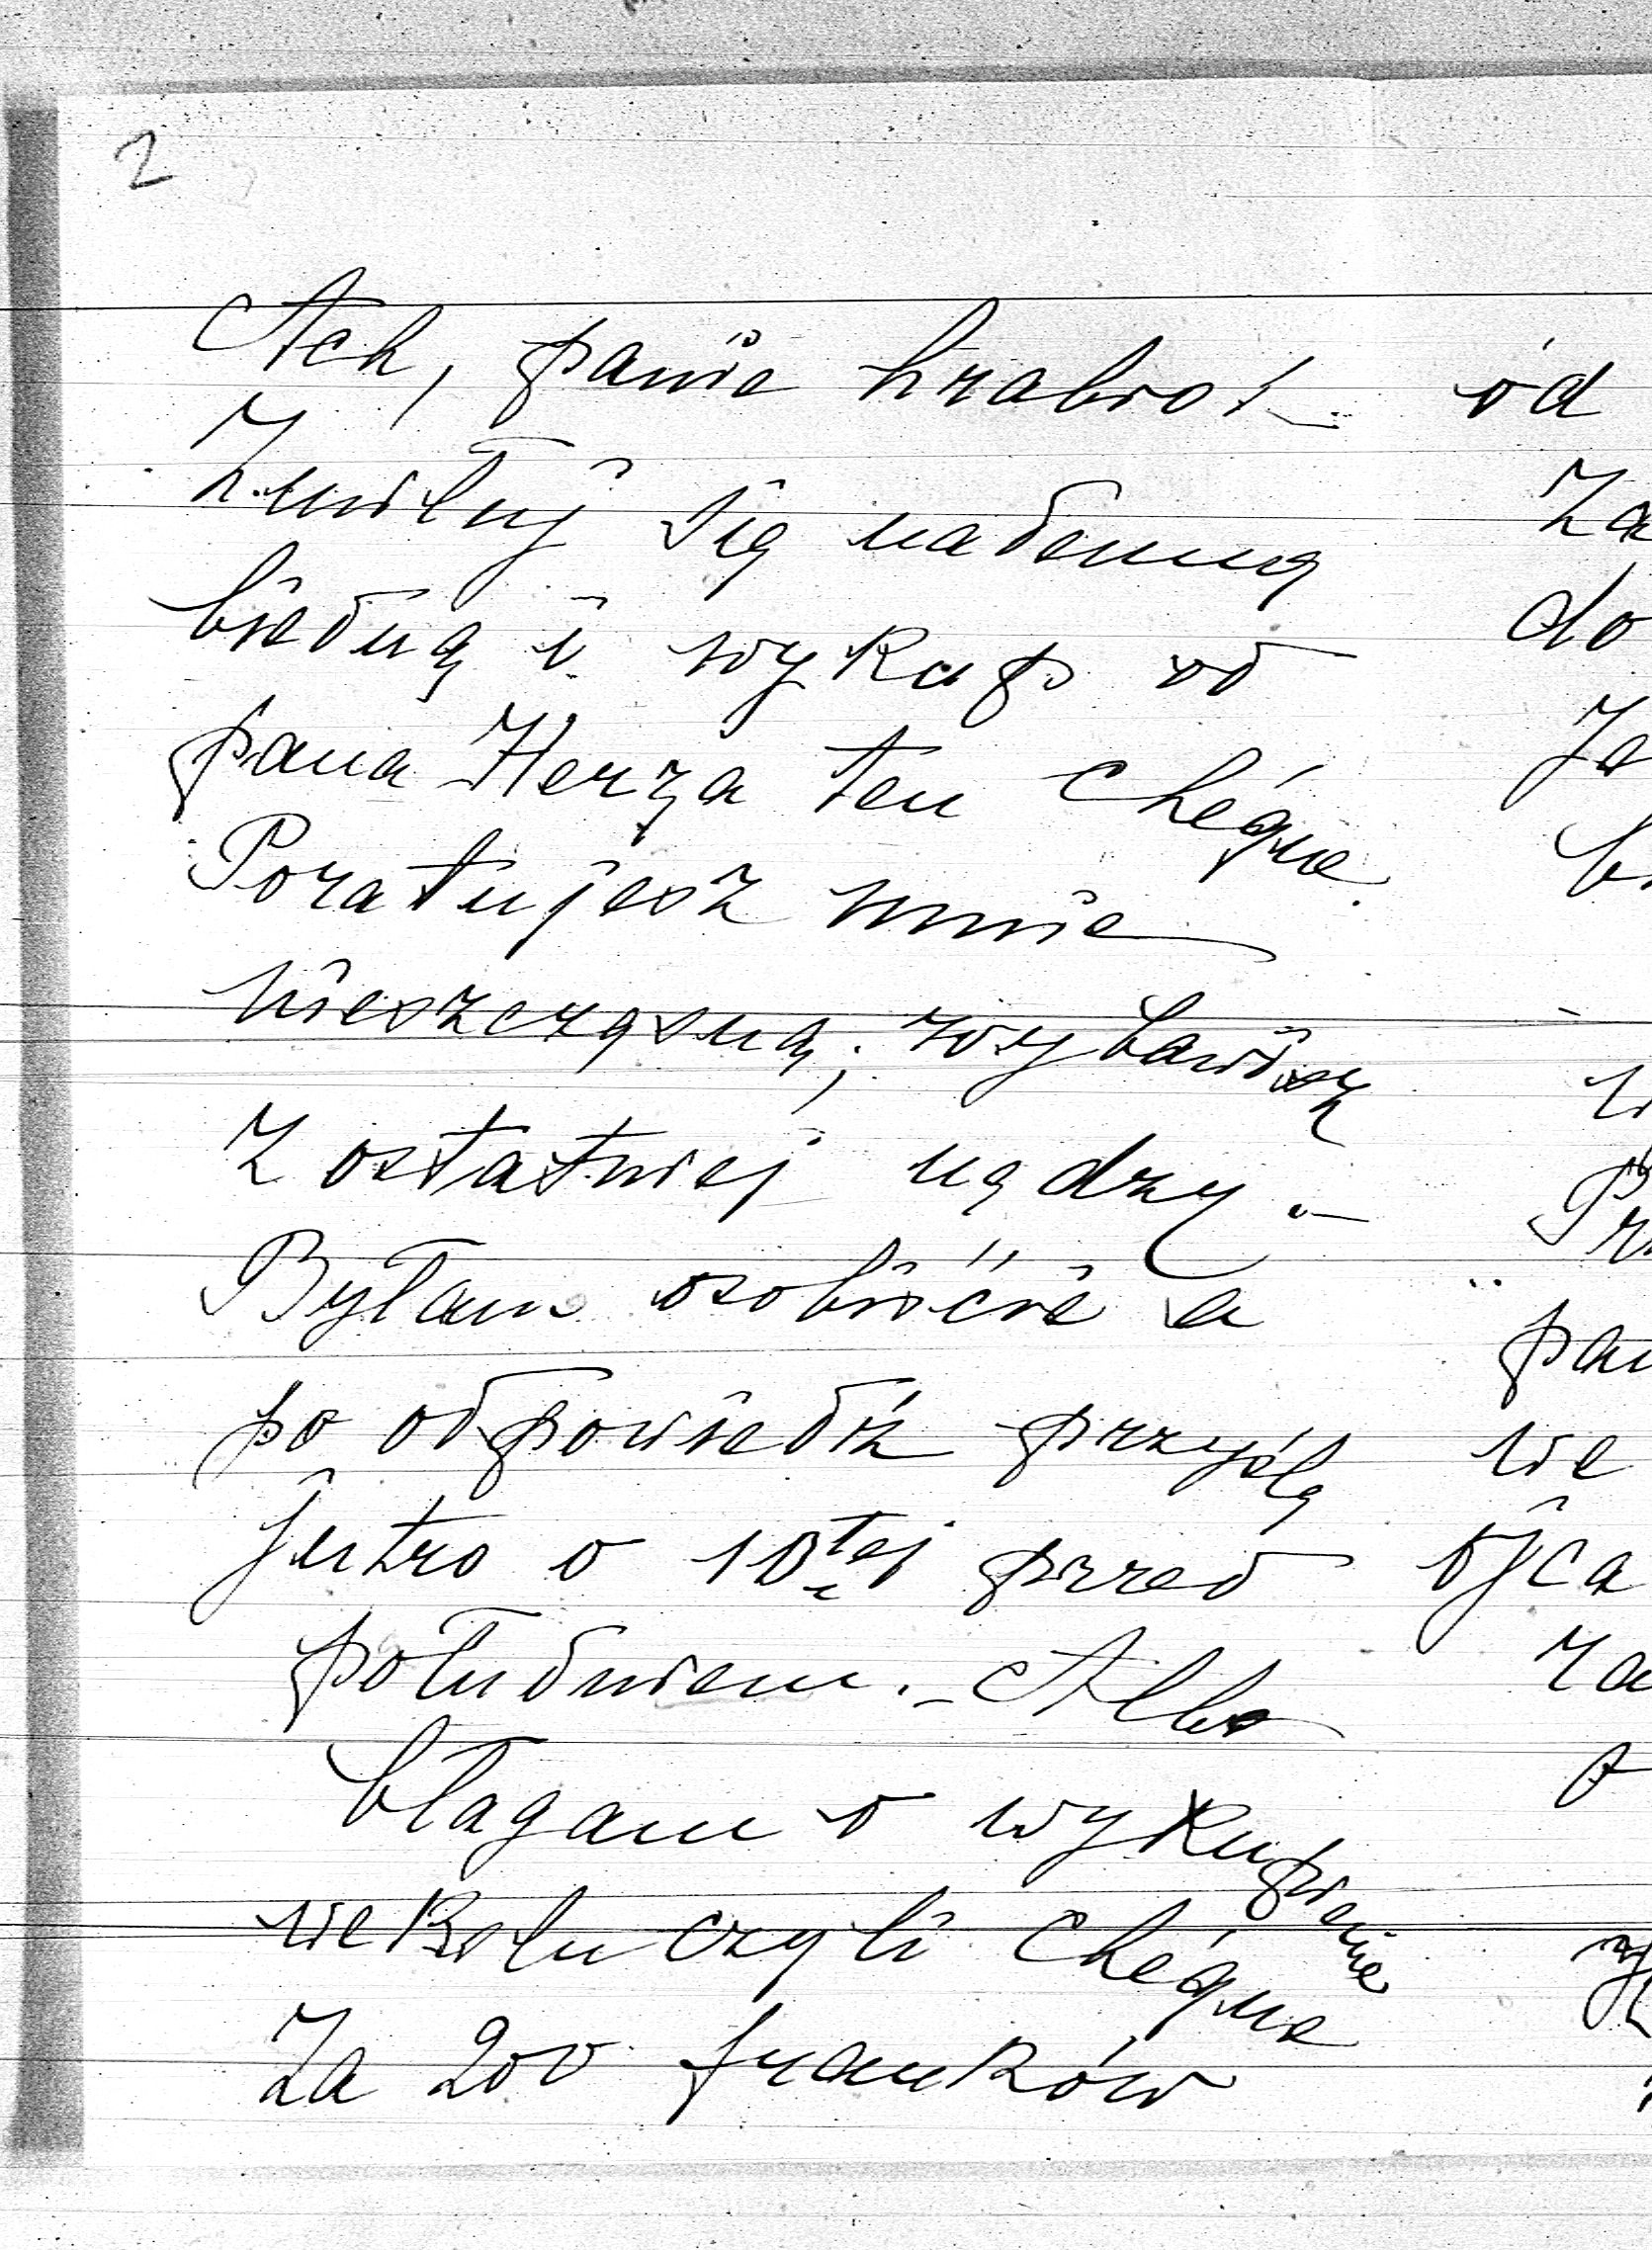 2
Ach, panie hrabio!
Zmiłuj się nademną
biedną i wykup od
pana Herza ten chéque.
Poratujesz mnie
nieszczęsną; wybawisz
z ostatniej nędzy. –
Byłam osobiście a
po odpowiedź przyślę
jutro o 10tej przed
południem. – Albo
błagam o wykupienie
wekslu czyli chéque
za 200 franków
od
za
do
Je
pan
nie
ojca
za